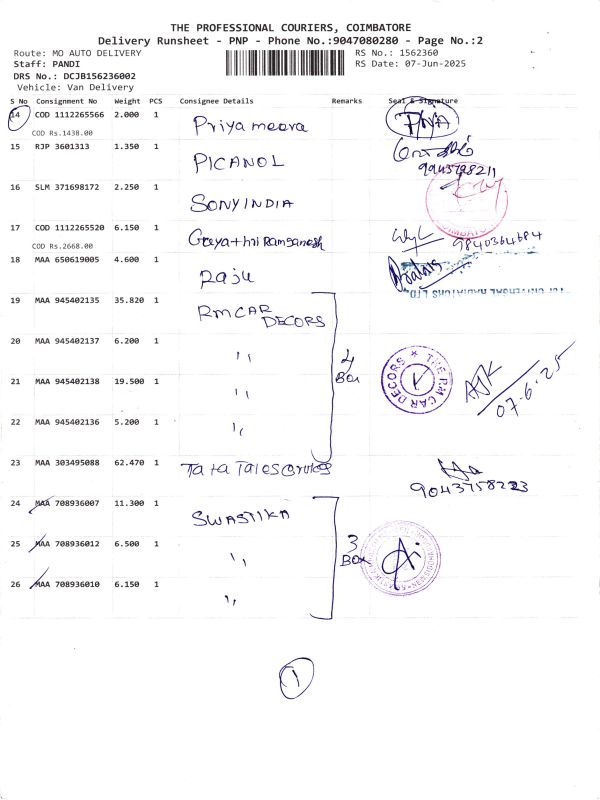 THE PROFESSIONAL COURIERS, COIMBATORE
Delivery Runsheet - PNP - Phone No.:9047080280 - Page No.:2
Route: MO AUTO DELIVERY
RS No.: 1562360
Staff: PANDI
RS Date: 07-Jun-2025
DRS No.: DCJB156236002
Vehicle: Van Delivery
S No Consignment No Weight PCS Consignee Details Remarks Seal & Signature
14 COD 1112265566 2.000 1 Priya meera
COD Rs.1438.00
15 RJP 3601313 1.350 1 PICANOL
9943798211
16 SLM 371698172 2.250 1 SONY INDIA
17 COD 1112265520 6.150 1 Gayathri Ramganesh 9840364684
COD Rs.2668.00
18 MAA 650619005 4.600 1 Raju
19 MAA 945402135 35.820 1 RM CAR DECORS
20 MAA 945402137 6.200 1 "
4 Box
THE RM CAR DECORS
21 MAA 945402138 19.500 1 "
07-6-25
22 MAA 945402136 5.200 1 "
23 MAA 303495088 62.470 1 Tata
9043758223
24 MAA 708936007 11.300 1 SWASTIKA
25 MAA 708936012 6.500 1 "
3 Box
26 MAA 708936010 6.150 1 "
1